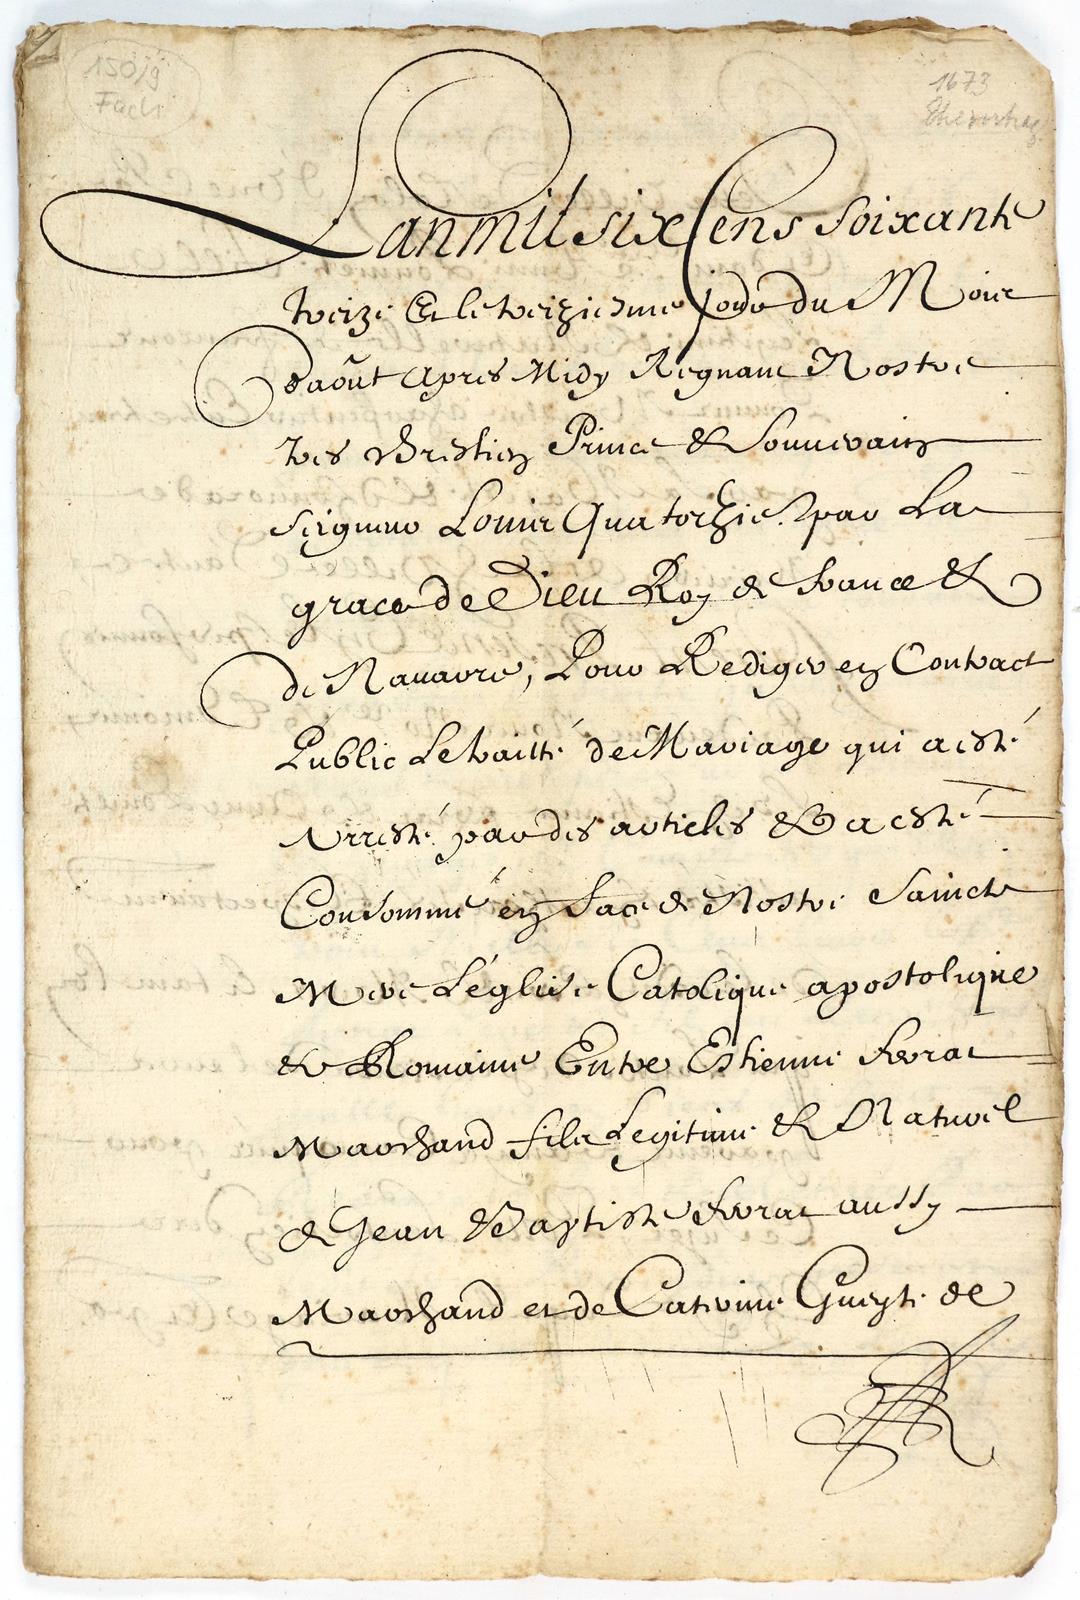 150/9
Fach
1673
Lan mil six Cens Soixante
treize Et le treiziesme jour du Mois
daoût apres Midy Regnant Nostre
tres Chrestien Prince & Souuerain
Seigneur Louis Quatorzie. par La
grace de Dieu Roy de france &
de Nauarre, Pour Rediger en Contract
Public Le traitté de Mariage qui a esté
Arresté par des articles & a esté
Consommé en face de Nostre Saincte
Mere L'églize Catolique apostolique
& Romaine Entre Estienne
Marchand fils Legitime & Naturel
de Jean Baptiste aussy
Marchand et de Catrine de